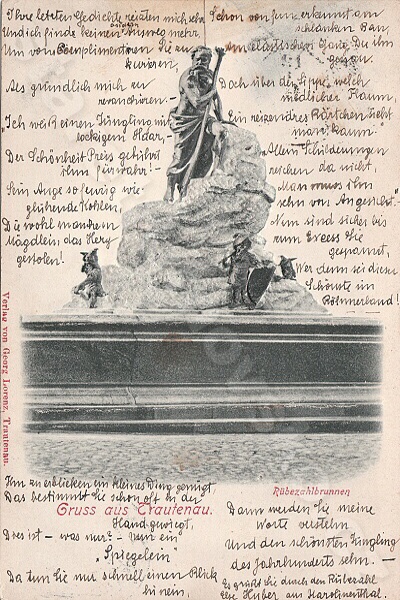 Ihre letzten Gedichte reizten mich sehr
Und ich finde keinen anderen Ausweg mehr,
Um vom Complimentiren Sie zu
kurieren,
Als gründlich mich zu
revanchieren. -
"Ich weiß einen Jüngling mit
lockigem Haar, -
Der Schönheit Preis gebührt
ihm fürwahr! -
Sein Auge so feurig wie
glühende Kohlen,
Die wohl manchem
Mägdlein, das Herz
gestolen!
Schon von fern erkennt am
schlanken Bau,
am elastischen Gang Du ihn
genau.
Doch über der Lippe, welch
niedlicher Flaum,
Ein reizendes Bärtchen, sieht
man kaum. -
Allein Schilderungen
reichen da nicht,
Man muss ihn
sehn von Angesicht. -
Nun sind sicher bis
zum Excess Sie
gespannt,
Wer denn sei dieser
Schönste im
Böhmerland!
Ihn zu erblicken ein kleines Ding genügt
Das bestimmt Sie schon oft in der
Hand gewiegt,
Dies ist - was nur? - nun ein
"Spiegelein"
Da tun Sie nur schnell einen Blick
hinein,
Rübezahlbrunnen
Gruss aus Trautenau.
Dann werden Sie meine
Worte verstehn
Und den schönsten Jüngling
des Jahrhunderts sehn. -
Es grüßt Sie durch den Rübezahl
Huber aus Karolinenthal.
Verlag von Georg Lorenz, Trautenau.